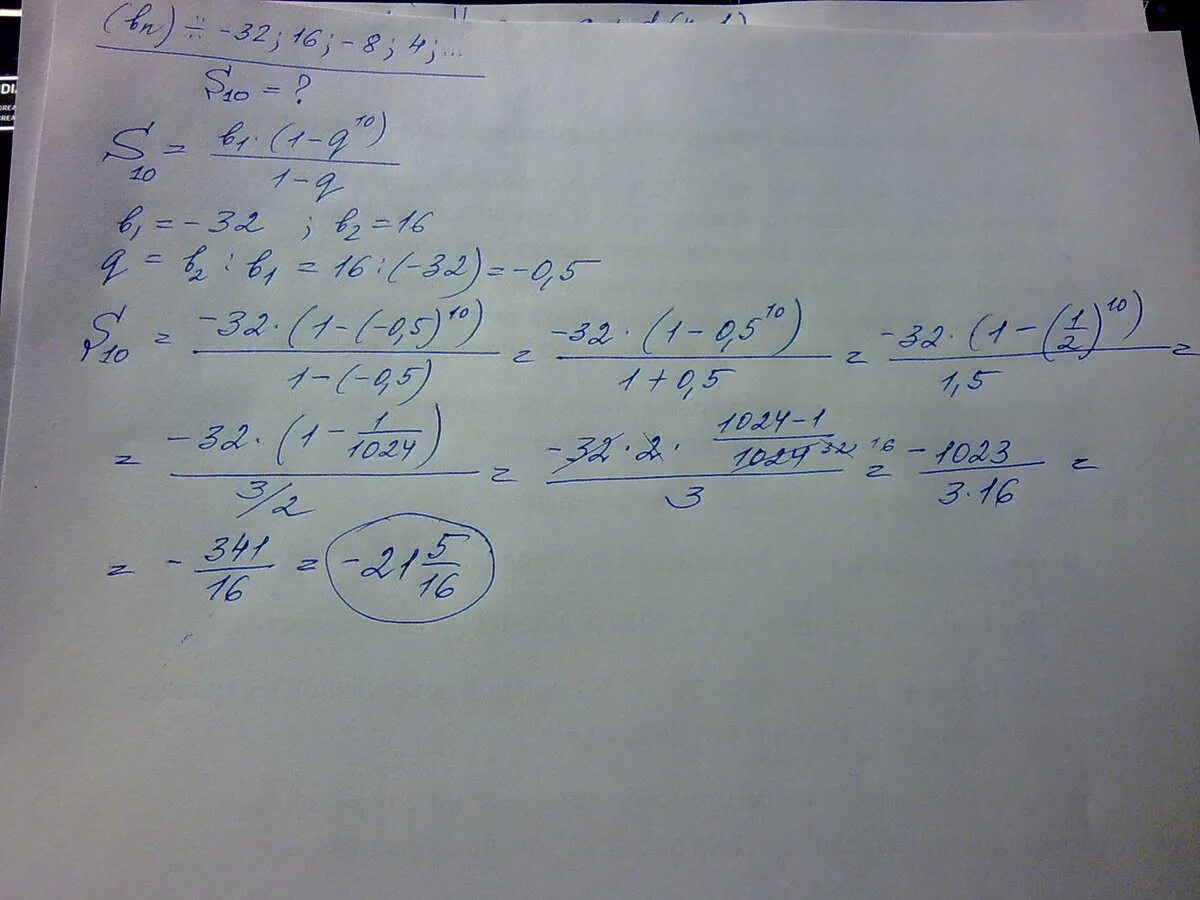 (bn) ÷ -32; 16; -8; 4; ...
S₁₀ = ?
S₁₀ = b₁·(1-q¹⁰) / 1-q
b₁ = -32 ; b₂ = 16
q = b₂ : b₁ = 16 : (-32) = -0,5
S₁₀ = -32·(1-(-0,5)¹⁰) / 1-(-0,5) = -32·(1-0,5¹⁰) / 1+0,5 = -32·(1-(1/2)¹⁰) / 1,5 =
= -32·(1-1/1024) / 3/2 = -32·2·(1024-1)/1024 32 16 / 3 = -1023 / 3·16 =
= - 341/16 = -21 5/16